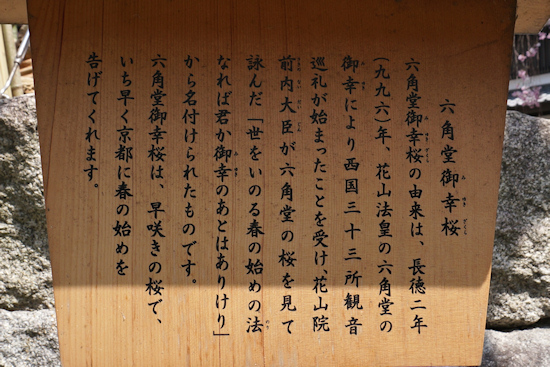 六角堂御幸桜
六角堂御幸桜の由来は、長徳二年
(九九六)年、花山法皇の六角堂の
御幸により西国三十三所観音
巡礼が始まったことを受け、花山院
前内大臣が六角堂の桜を見て
詠んだ「世をいのる春の始めの法
なれば君か御幸のあとはありけり」
から名付けられたものです。
六角堂御幸桜は、早咲きの桜で、
いち早く京都に春の始めを
告げてくれます。